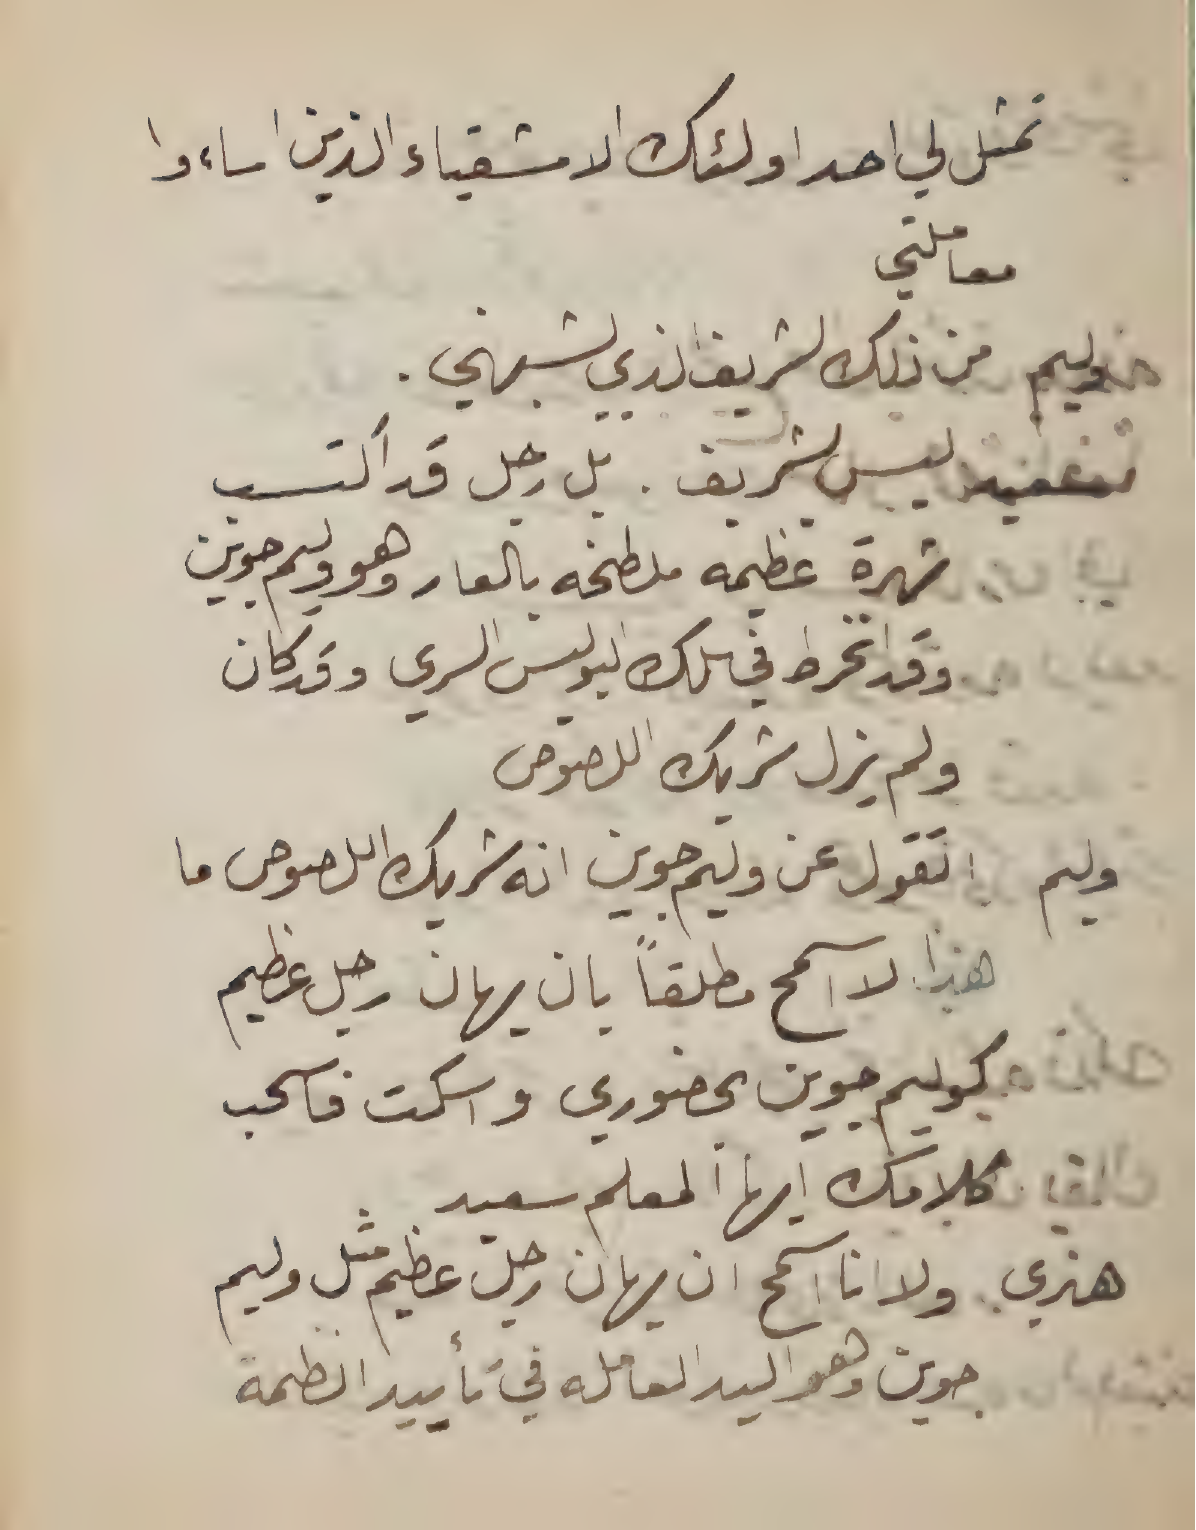 تمثل لي احد اولئك الاشقياء الذين اساءوا
معاملتي
وليم من ذلك الشريف الذي تشبهني .
ليس بشريف . بل رجل قد اكتسب
شهرة عظيمه ملطخه بالعار وهو وليم جوين
وقد انخرط في سلك البوليس السري وقد كان
ولم يزل شريك اللصوص
وليم اتقول عن وليم جوين انه شريك اللصوص ما
هذا لا اسمح مطلقاً بان يهان رجل عظيم
كوليم جوين بحضوري واسكت فاسحب
كلامك ايها المعلم سعيد
هنري . ولا انا اسمح ان يهان رجل عظيم مثل وليم
جوين وهو اليد العامله في تأييد انظمة